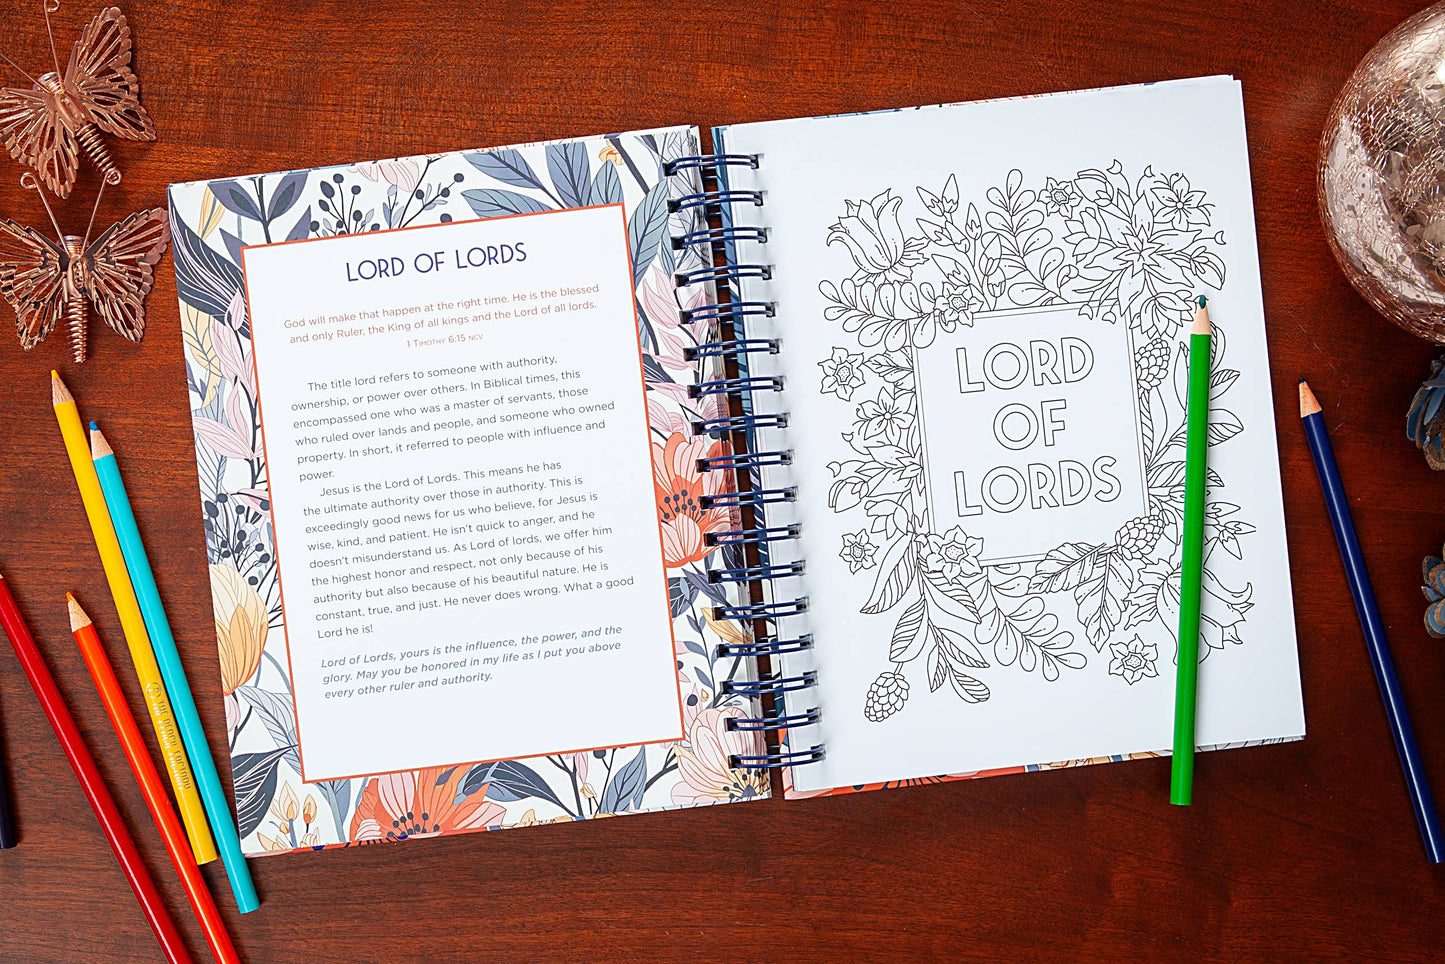 LORD OF LORDS
God will make that happen at the right time. He is the blessed
and only Ruler, the King of all kings and the Lord of all lords.
1 TIMOTHY 6:15 NCV
The title lord refers to someone with authority,
ownership, or power over others. In Biblical times, this
encompassed one who was a master of servants, those
who ruled over lands and people, and someone who owned
property. In short, it referred to people with influence and
power.
Jesus is the Lord of Lords. This means he has
the ultimate authority over those in authority. This is
exceedingly good news for us who believe, for Jesus is
wise, kind, and patient. He isn't quick to anger, and he
doesn't misunderstand us. As Lord of lords, we offer him
the highest honor and respect, not only because of his
authority but also because of his beautiful nature. He is
constant, true, and just. He never does wrong. What a good
Lord he is!
Lord of Lords, yours is the influence, the power, and the
glory. May you be honored in my life as I put you above
every other ruler and authority.
LORD
OF
LORDS
THE PENCIL FACTORY